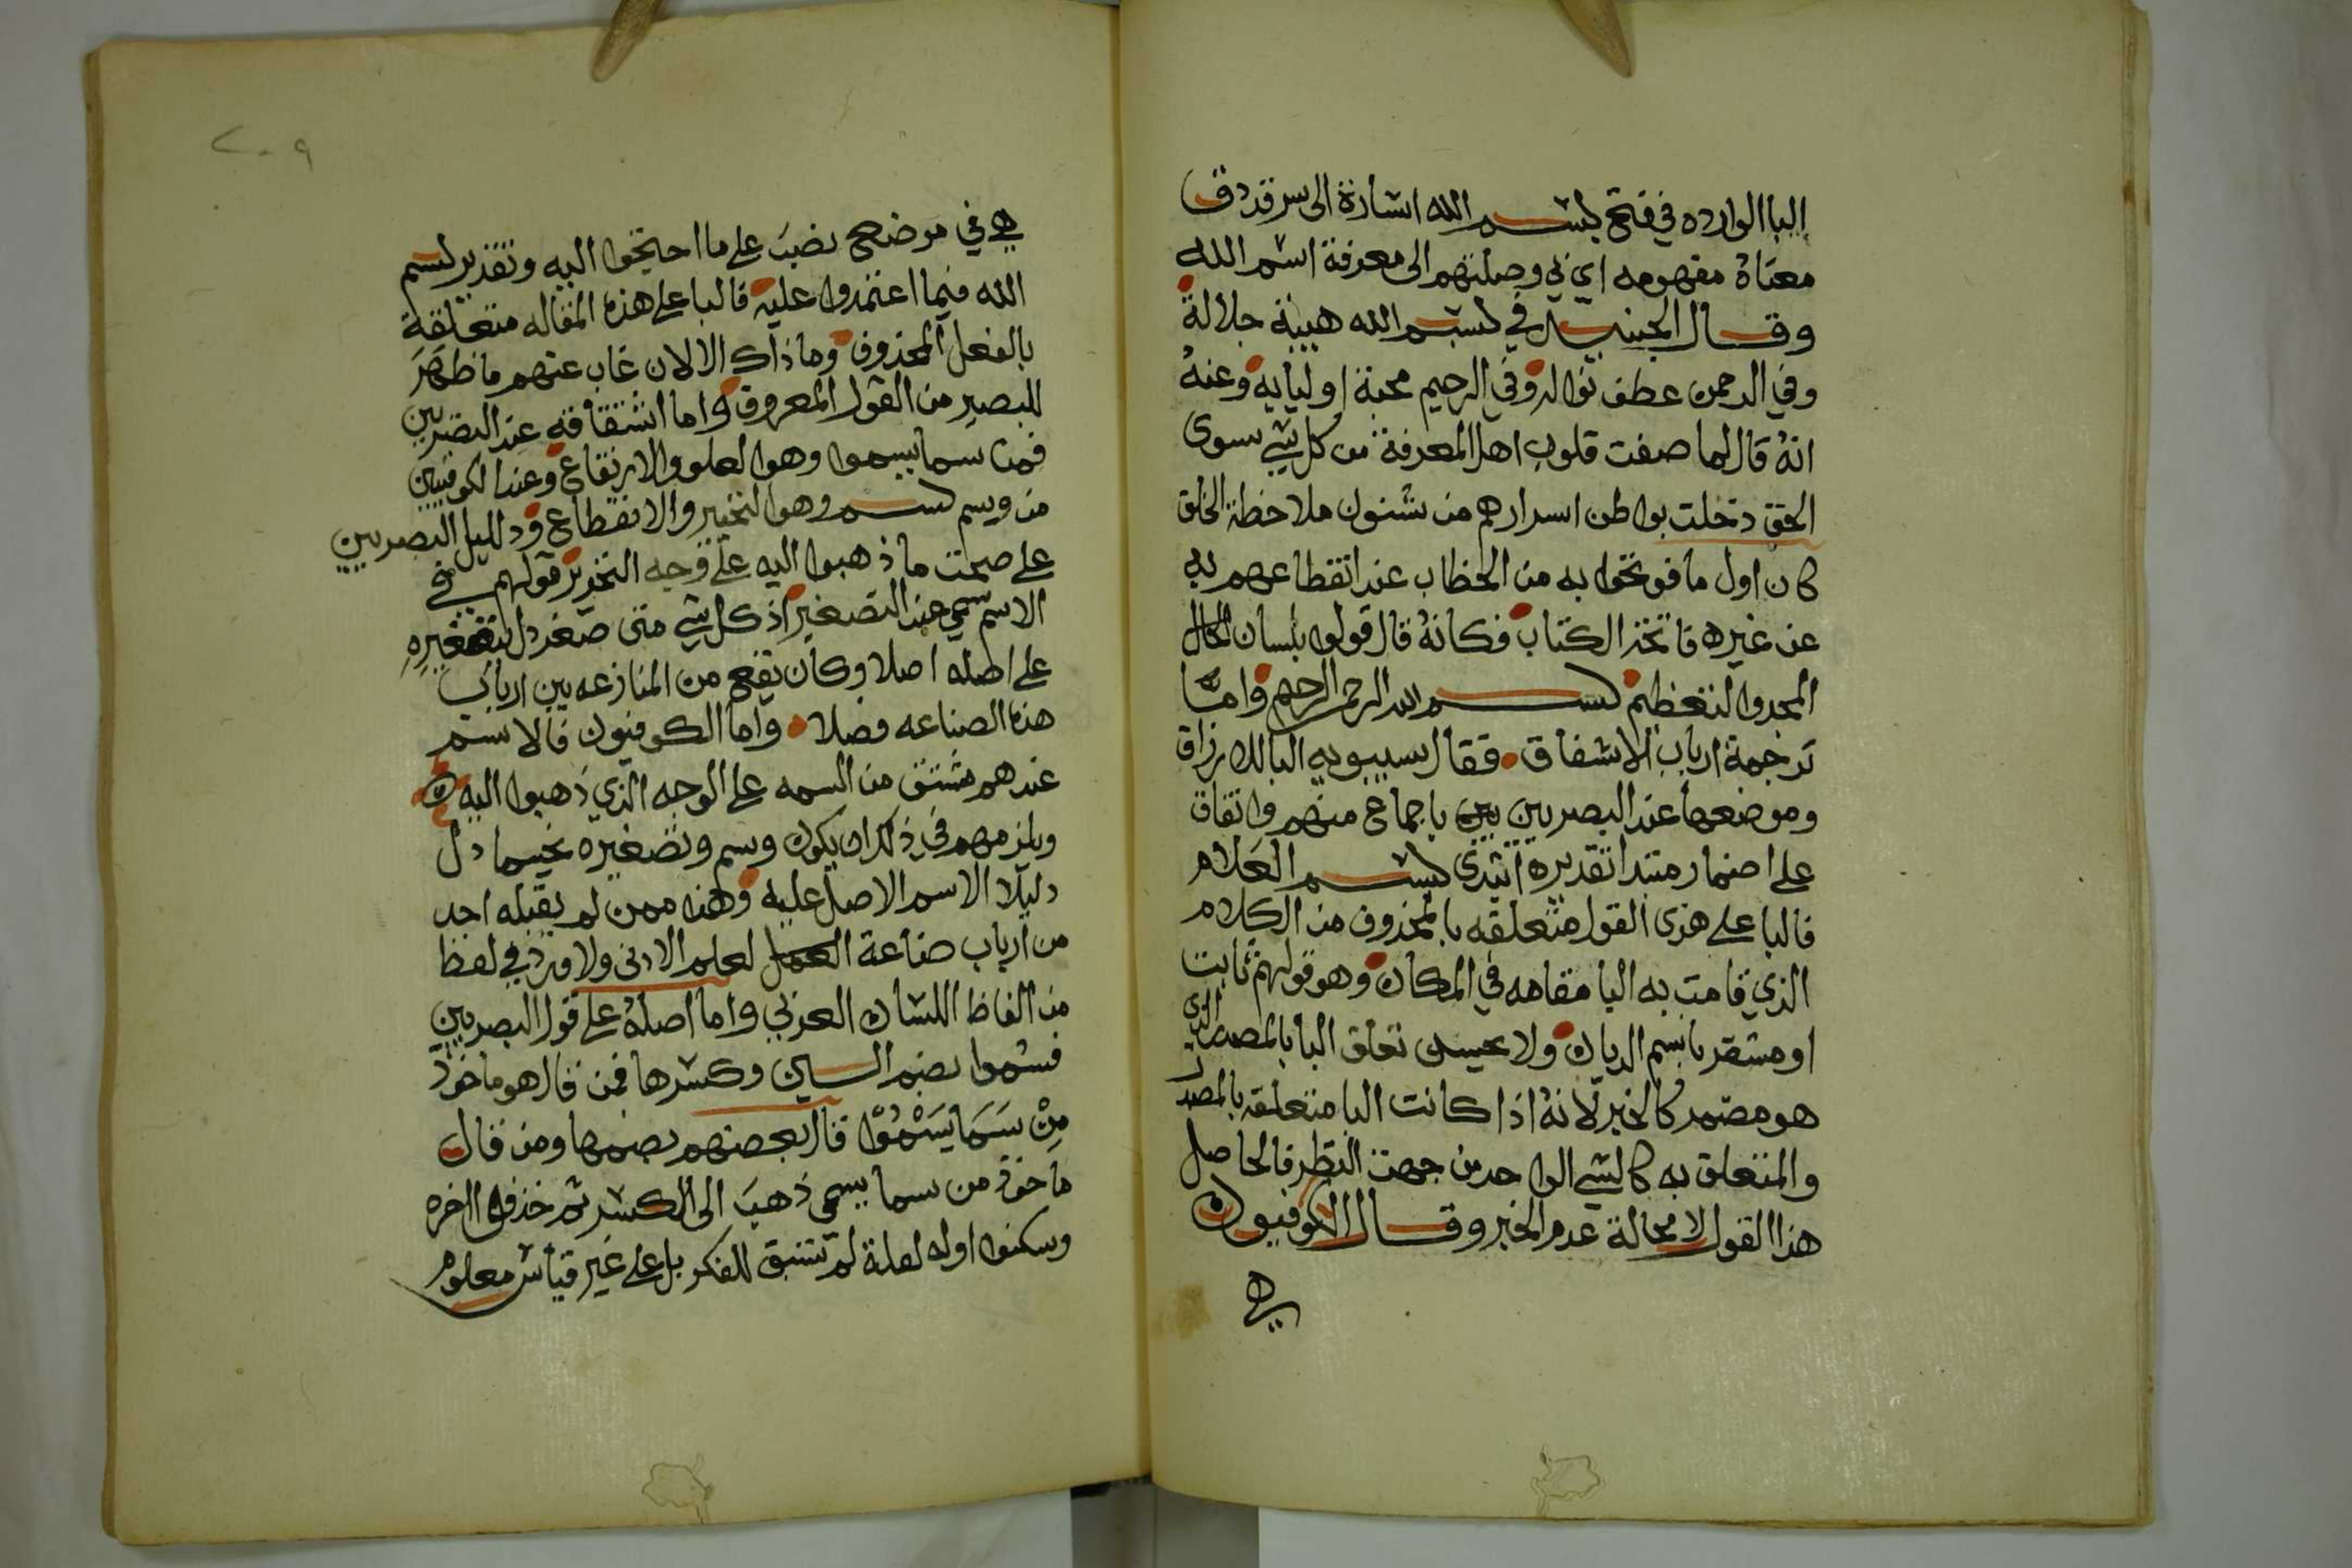 البا الوارده في فتح بسم الله اشارة الى سر قد دق
معناه مفهومه اي بي وصلتهم الى معرفة اسم الله
وقال الجنيد في بسم الله هيبة جلالة
وفي الرحمن عطف نواله وفي الرحيم محبة اوليايه وعنه
انه قال لما صفت قلوب اهل المعرفة من كل شي سوى
الحق دتخلت بواطن اسرارهم من شنون ملاحظة الخلق
كان اول ما فوتحوا به من الخطاب عند انقطاعهم به
عن غيره فاتحة الكتاب فكانه قال قولوا بلسان الحال
المجد والتعظيم بسم الله الرحمن الرحيم واما
ترجمة ارباب الاشفاق فقال سيبويه البا للالزاق
وموضعها عند البصريين باجماع منهم واتفاق
على اضمار مبتدا تقديره ابتدى بسم العلام
فالبا على هذى القول متعلقه بالمحذوف من الكلام
الذي قامت به البا مقامه في المكان وهو قولهم ثابت
او مستقر باسم الديان ولا يحسن تعلق البا بالمصدر الذي
هو مضمر كالخبر لانه اذا كانت البا متعلقه بالمصدر
والمتعلق به كالشي الواحد من جهت النظر فالحاصل
هذا القول لا محالة عدم الخبر وقال الكوفيون
هي
٢٠٩
هي في موضع نصب على ما احتيجوا اليه وتقدير بسم
الله فيما اعتمدوا عليه فالبا على هذه المقاله متعلقة
بالفعل المحذوف وما ذاك الا لان غاب عنهم ما ظهر
للبصير من القول المعروف واما اشتقاقه عند البصريين
فمن سما يسموا وهو العلو والارتفاع وعند الكوفيين
من ويسم بسم وهو التخيير والانقطاع ودليل البصريين
على صحت ما ذهبوا اليه على وجه التحرير قولهم في
الاسم سمي عند التصغير اذ كل شي متى صغر دل بتصغيره
على اصله اصلا وكان يقع من المنازعه بين ارباب
هذه الصناعه فصلا واما الكوفيون فالاسم
عندهم مشتق من السمه على الوجه الذي ذهبوا اليه
ويلزمهم في ذلك ان يكون وسم وتصغيره يخيسما دل
دليلا الاسم الاصل عليه وهذه ممن لم يقبله احد
من ارباب صناعة لعلم الادنى ولا ورد في لفظ
من الفاظ اللسان العربي واما اصله على قول البصريين
فسموا بضم السين وكسرها فمن قال هو ماخوذ
من سما يسموا قال بعضهم بضمها ومن قال
ماخوذ من سما يسمي ذهب الى الكسر ثم حذفوا اخره
وسكنوا اوله لعلة لم تسبق للفكر بل على غير قياس معلوم